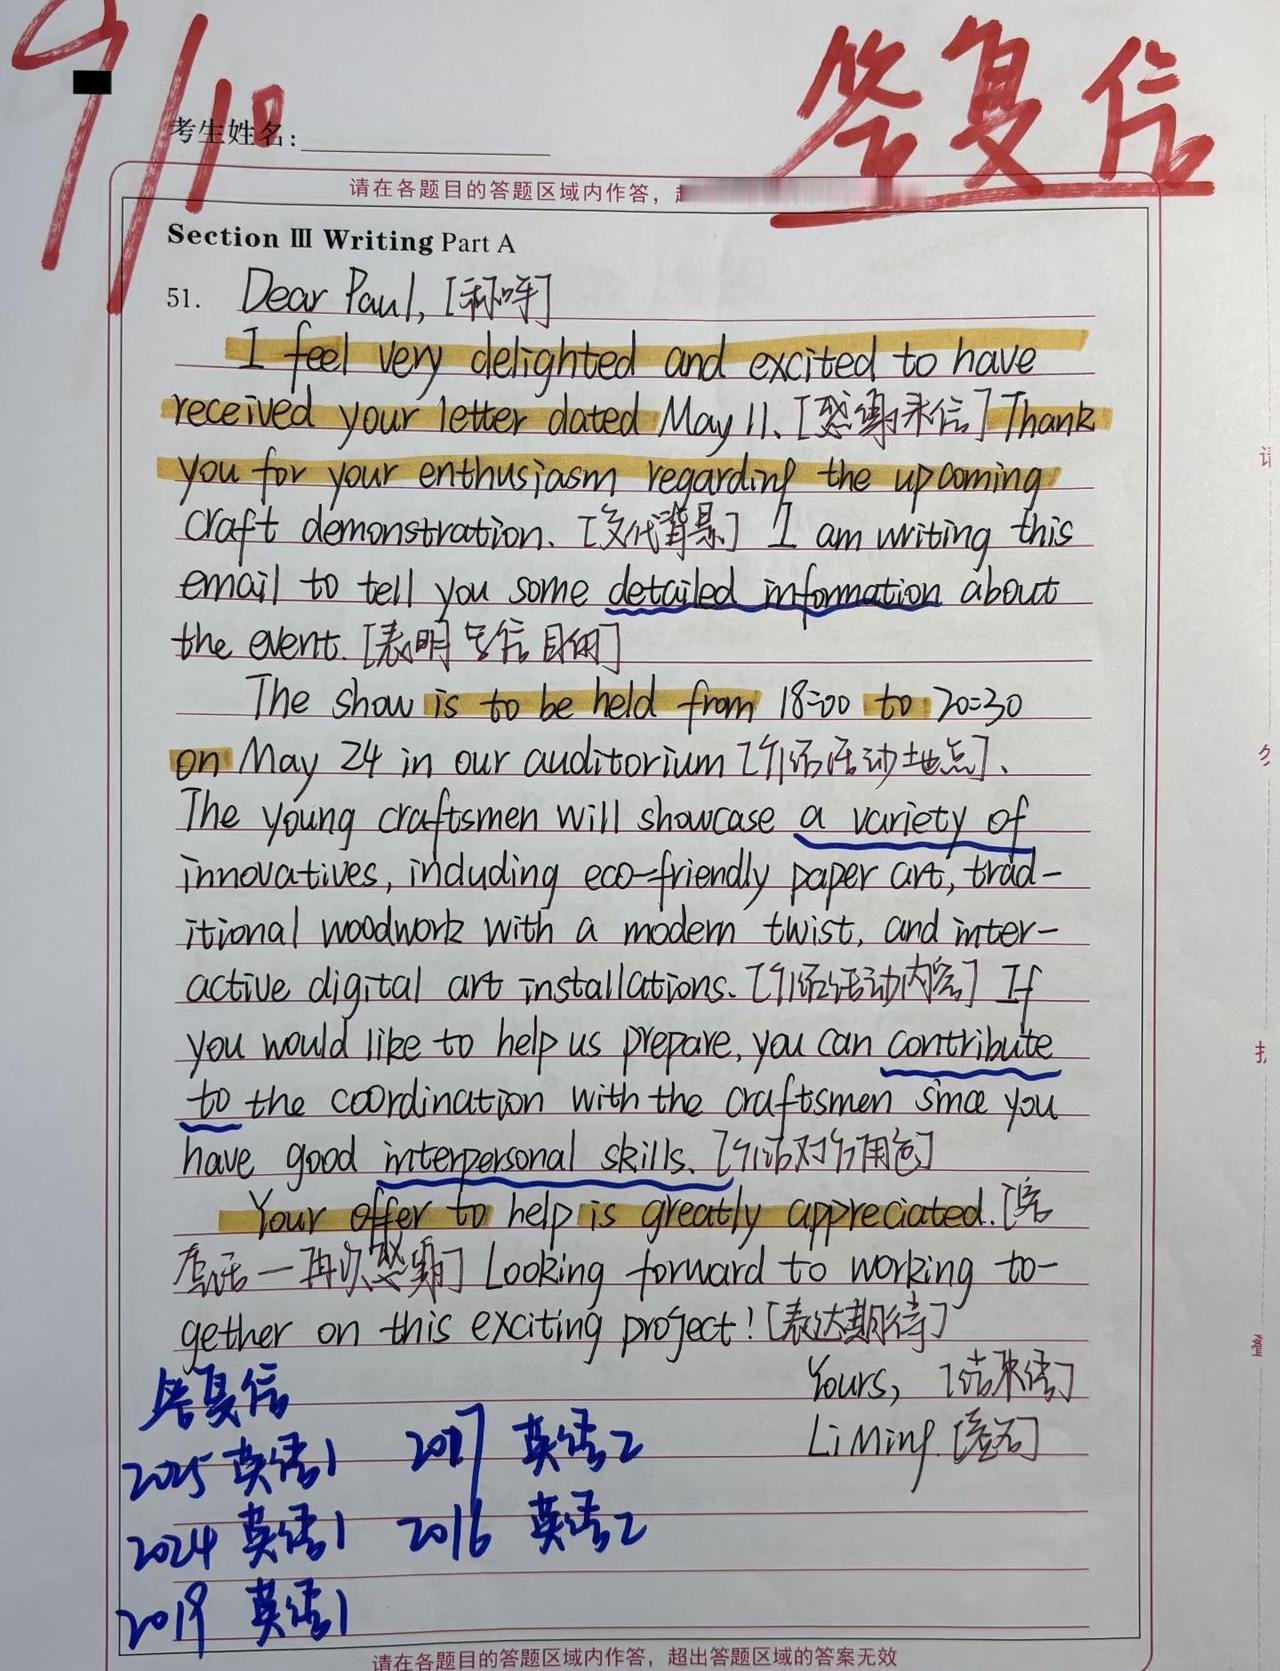 9/10
答复信
考生姓名:
请在各题目的答题区域内作答，
Section Ⅲ Writing Part A
51. Dear Paul, [称呼]
I feel very delighted and excited to have
received your letter dated May 11. [感谢来信] Thank
you for your enthusiasm regarding the upcoming
craft demonstration. [交代背景] I am writing this
email to tell you some detailed information about
the event. [表明写信目的]
The show is to be held from 18:00 to 20:30
on May 24 in our auditorium [介绍活动地点].
The young craftsmen will showcase a variety of
innovatives, including eco-friendly paper art, trad-
itional woodwork with a modern twist, and inter-
active digital art installations. [介绍活动内容] If
you would like to help us prepare, you can contribute
to the coordination with the craftsmen since you
have good interpersonal skills. [介绍对方角色]
Your offer to help is greatly appreciated. [客
套话—再次感谢] Looking forward to working to-
gether on this exciting project! [表达期待]
Yours, [结束语]
Li Ming. [签名]
答复信
2025 英语1 2017 英语2
2024 英语1 2016 英语2
2019 英语1
请在各题目的答题区域内作答，超出答题区域的答案无效